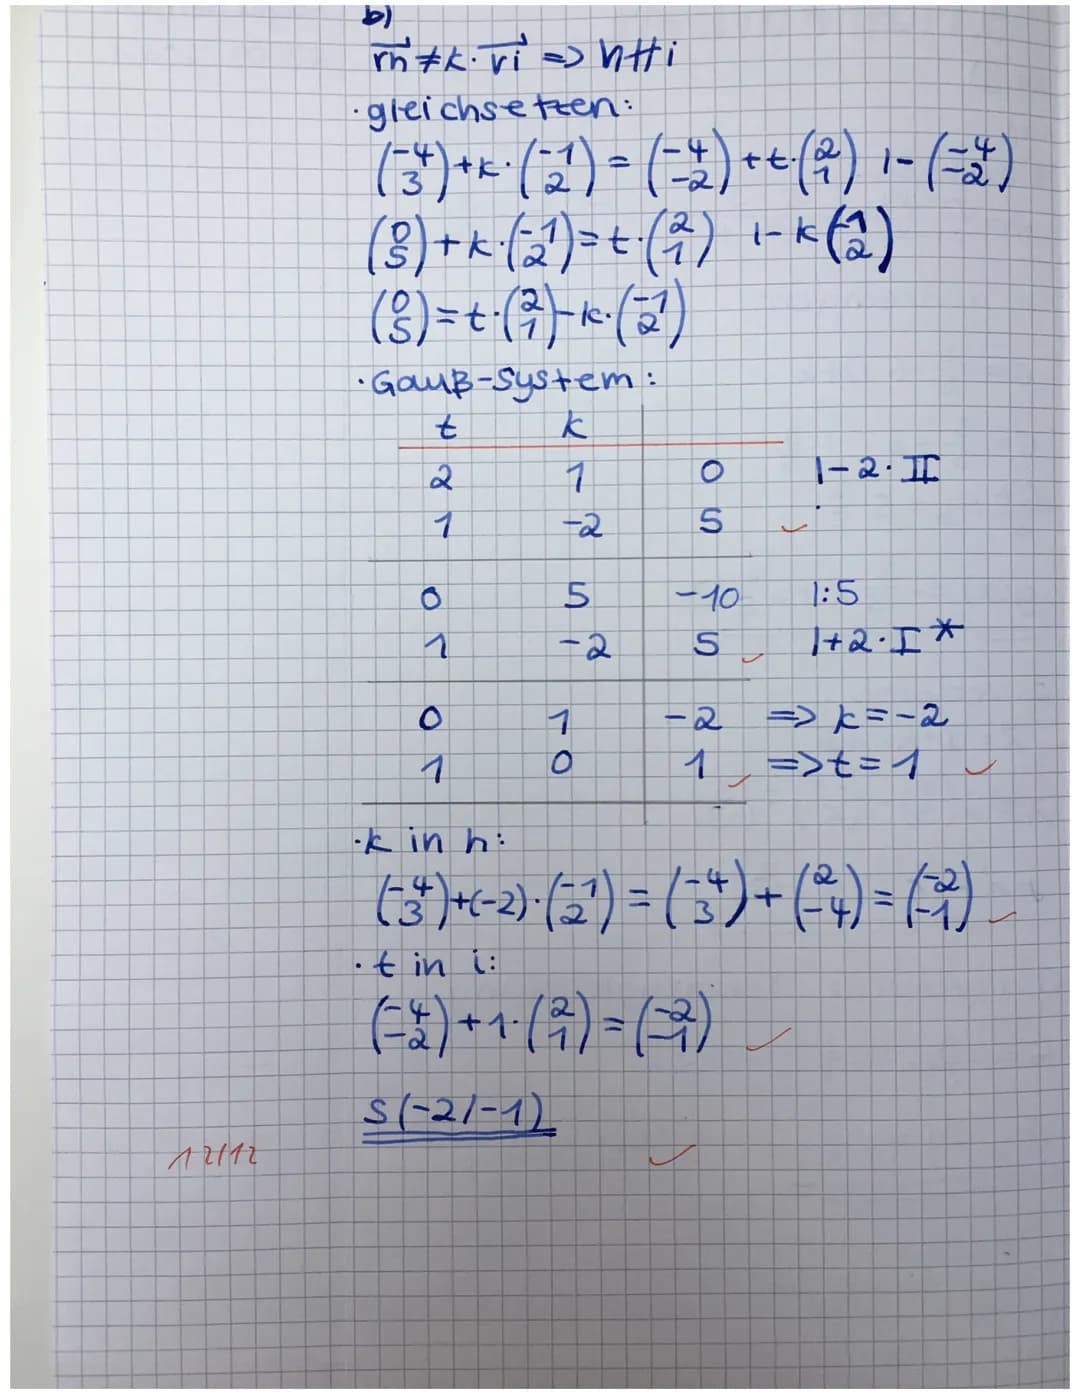 b)
→rh ≠ k · →ri => h∦i
· gleichsetzen:
(-4 3) + k · (-1 2) = (-4 -2) + t · (2 1) |- (-4 -2)
(0 5) + k · (-1 2) = t · (2 1) |- k (-1 2)
(0 5) = t · (2 1) - k · (-1 2)
· Gauß-System:
t k
2 1 0 |- 2 · II
1 -2 5
0 5 -10 |:5
1 -2 5 |+2 · I*
0 1 -2 => k = -2
1 0 1 => t = 1
· k in h:
(-4 3) + (-2) · (-1 2) = (-4 3) + (2 -4) = (-2 -1)
· t in i:
(-4 -2) + 1 · (2 1) = (-2 -1)
S(-2/-1)
12/12